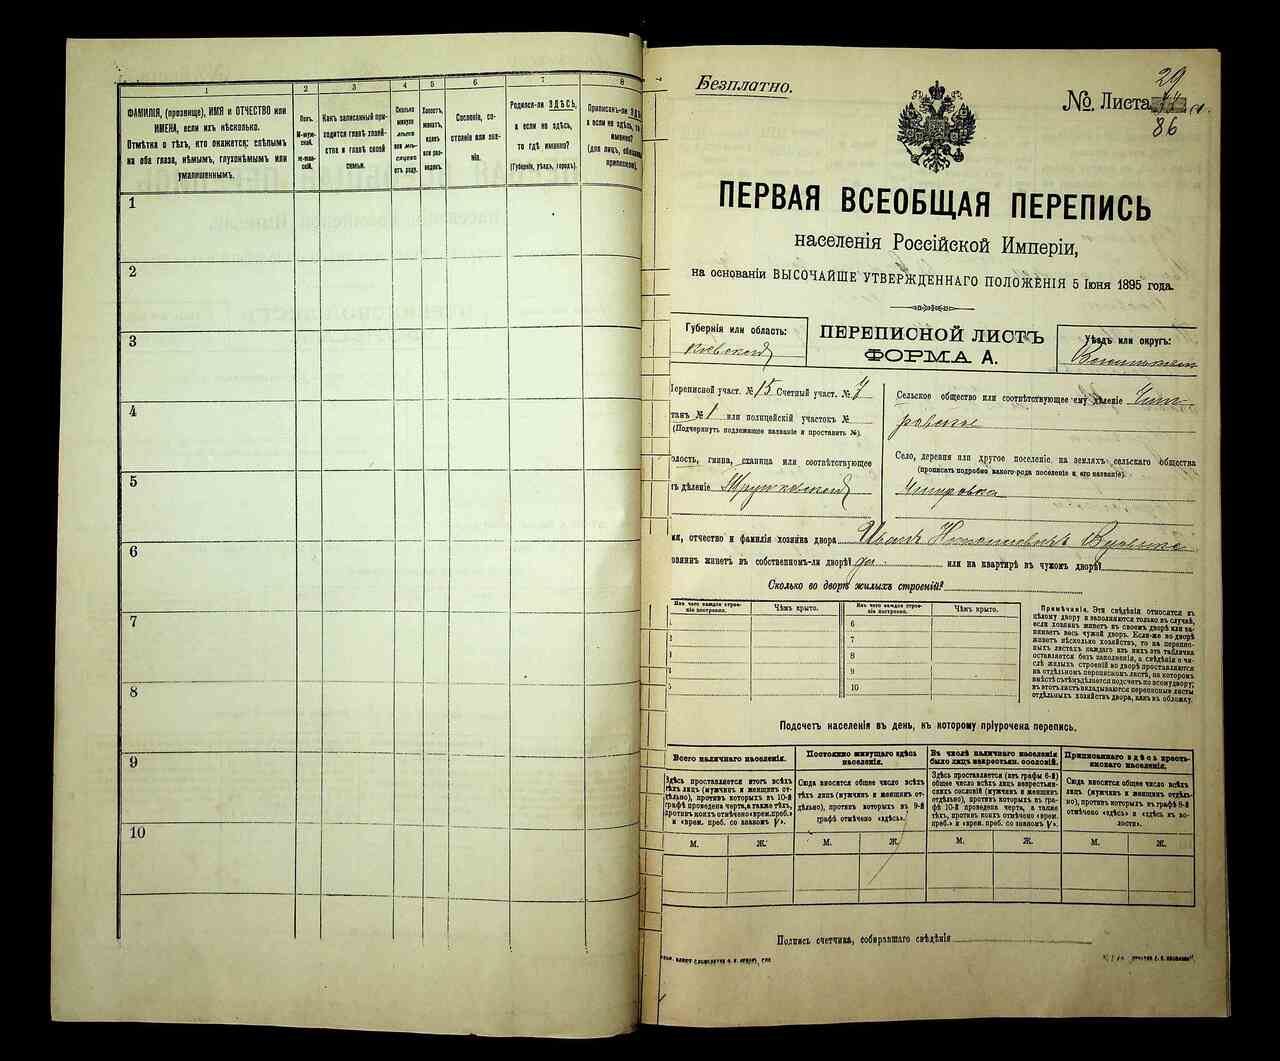 1
2
3
4
5
6
7
8
ФАМИЛІЯ, (прозвище), ИМЯ и ОТЧЕСТВО или
ИМЕНА, если ихъ нѣсколько.
Отмѣтка о тѣхъ, кто окажется: слѣпымъ
на оба глаза, нѣмымъ, глухонѣмымъ или
умалишеннымъ.
Полъ.
М-муж-
ской.
Ж-жен-
скій.
Какъ записанный при-
ходится главѣ хозяй-
ства и главѣ своей
семьи.
Сколько
минуло
лѣтъ
или мѣ-
сяцевъ
отъ роду.
Холостъ,
женатъ,
вдовъ
или раз-
веденъ.
Сословіе, со-
стояніе или зва-
ніе.
Родился-ли ЗДѢСЬ,
а если не здѣсь,
то гдѣ именно?
(Губернія, уѣздъ, городъ).
Приписанъ-ли ЗДѢ
а если не здѣсь, то
именно?
(для лицъ, обязан
припискою).
1
2
3
4
5
6
7
8
9
10
Безплатно.
№ Листа
29
86
ПЕРВАЯ ВСЕОБЩАЯ ПЕРЕПИСЬ
населенія Россійской Имперіи,
на основаніи ВЫСОЧАЙШЕ УТВЕРЖДЕННАГО ПОЛОЖЕНІЯ 5 Іюня 1895 года.
Губернія или область:
Кіевской
ПЕРЕПИСНОЙ ЛИСТЪ
ФОРМА А.
Уѣздъ или округъ:
Переписной участ. № 15 Счетный участ. № 7
танъ № 1 или полицейскій участокъ №
(Подчеркнуть подлежащее названіе и проставить №).
олость, гмина, станица или соотвѣтствующее
ъ дѣленіе
Сельское общество или соотвѣтствующее ему дѣленіе
Село, деревня или другое поселеніе на земляхъ сельскаго общества
(прописать подробно какого рода поселеніе и его названіе).
мя, отчество и фамилія хозяина двора Иванъ
озяинъ живетъ въ собственномъ-ли дворѣ? да. или на квартирѣ въ чужомъ дворѣ?
Сколько во дворѣ жилыхъ строеній?
Изъ чего каждое строе-
ніе построено.
Чѣмъ крыто.
Изъ чего каждое строе-
ніе построено.
Чѣмъ крыто.
6
7
8
9
10
Примѣчаніе. Эти свѣдѣнія относятся къ
цѣлому двору и заполняются только въ случаѣ,
если хозяинъ живетъ въ своемъ дворѣ или за-
нимаетъ весь чужой дворъ. Если-же во дворѣ
живетъ нѣсколько хозяйствъ, то на перепис-
ныхъ листахъ каждаго изъ нихъ эта табличка
оставляется безъ заполненія, а свѣдѣнія о чи-
слѣ жилыхъ строеній во дворѣ проставляются
на отдѣльномъ переписномъ листѣ, на которомъ
вмѣстѣ съ тѣмъ дѣлается подсчетъ по всему двору;
въ этотъ листъ вкладываются переписные листы
отдѣльныхъ хозяйствъ двора, какъ въ обложку.
Подсчетъ населенія въ день, къ которому пріурочена перепись.
Всего наличнаго населенія.
Постоянно живущаго здѣсь
населенія.
Въ числѣ наличнаго населенія
было лицъ некрестьян. сословій.
Приписаннаго здѣсь кресть-
янскаго населенія.
Здѣсь проставляется итогъ всѣхъ
тѣхъ лицъ (мужчинъ и женщинъ от-
дѣльно), противъ которыхъ въ 10-й
графѣ проведена черта, а также тѣхъ,
противъ коихъ отмѣчено «врем. преб.»
и «врем. преб. со знакомъ V».
Сюда вносится общее число всѣхъ
тѣхъ лицъ (мужчинъ и женщинъ от-
дѣльно), противъ которыхъ въ 9-й
графѣ отмѣчено «здѣсь».
Здѣсь проставляется (изъ графы 6-й)
общее число всѣхъ лицъ некрестьян-
скихъ сословій (мужчинъ и женщинъ
отдѣльно), противъ которыхъ въ гра-
фѣ 10-й проведена черта, а также
тѣхъ, противъ коихъ отмѣчено «врем.
преб.» и «врем. преб. со знакомъ V».
Сюда вносится общее число всѣхъ тѣхъ
лицъ (мужчинъ и женщинъ отдѣль-
но), противъ которыхъ въ графѣ 8-й
отмѣчено «здѣсь» и «здѣсь въ во-
лости».
М.
Ж.
М.
Ж.
М.
Ж.
М.
Ж.
Подпись счетчика, собиравшаго свѣдѣнія